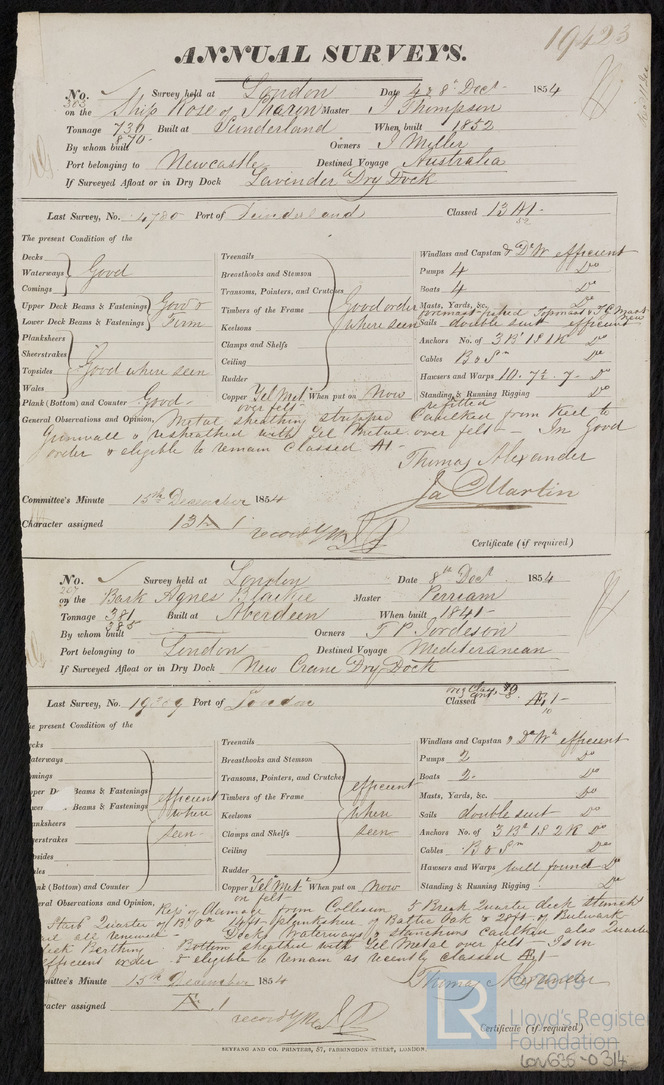 19423
ANNUAL SURVEYS.
No. 303 Survey held at London Date 4 & 8th Decr 1854
on the Ship Rose of Sharon Master J Thompson
Tonnage 736 870 Built at Sunderland When built 1852
By whom built Owners J Miller
Port belonging to Newcastle Destined Voyage Australia
If Surveyed Afloat or in Dry Dock Lavender Dry Dock
Last Survey, No. 4780 Port of Sunderland Classed 13 A1 - 52
The present Condition of the
Decks
Waterways Good
Comings
Upper Deck Beams & Fastenings Good &
Lower Deck Beams & Fastenings Firm
Planksheers
Sheerstrakes
Topsides Good where seen
Wales
Plank (Bottom) and Counter Good -
Treenails
Breasthooks and Stemson
Transoms, Pointers, and Crutches
Timbers of the Frame Good order
Keelsons where seen
Clamps and Shelfs
Ceiling
Rudder
Copper Yel Metl over felt When put on Now
Windlass and Capstan & Dk Wh efficient
Pumps 4 Do
Boats 4 Do
Masts, Yards, &c. Do
Sails double suit efficient
Anchors No. of 3 Br 1 S 1 K Do
Cables B & Sm Do
Hawsers and Warps 10. 7½. 7 - Do
Standing & Running Rigging refitted Do
General Observations and Opinion, Metal sheathing stripped Caulked from Keel to
Gunwall & resheathed with Yel Metal over felt - In Good
order & eligible to remain Classed A1 -
Thomas Alexander
Jas Martin
Committee's Minute 15th December 1854
Character assigned 13 A 1
record YM
Certificate (if required)
No. 267 Survey held at London Date 8th Decr 1854
on the Bark Agnes Blaikie Master Perriam
Tonnage 381 385 Built at Aberdeen When built 1841 -
By whom built Owners T P Jordeson
Port belonging to London Destined Voyage Mediteranean
If Surveyed Afloat or in Dry Dock New Crane Dry Dock
Last Survey, No. 19309 Port of London Classed Æ 1 - 10
he present Condition of the
ecks
aterways
omings
per De Beams & Fastenings efficient
wer Beams & Fastenings where
anksheers seen -
eerstrakes
psides
ales
ank (Bottom) and Counter
Treenails
Breasthooks and Stemson
Transoms, Pointers, and Crutches
Timbers of the Frame efficient
Keelsons when
Clamps and Shelfs seen
Ceiling
Rudder
Copper Yel Metl on felt When put on Now
Windlass and Capstan & Dk Wh efficient
Pumps 2 Do
Boats 2. Do
Masts, Yards, &c. Do
Sails double suit Do
Anchors No. of 3 Br 1 S 2 K Do
Cables B & Sm Do
Hawsers and Warps Well found Do
Standing & Running Rigging Do
eral Observations and Opinion, Repg of damage from Collision 5 Break Quarter deck
Starb Quarter Upper planksheer of Baltic Oak & 20ft of Bulwark
ail all renewed - Decks Waterways & stanchions caulked also Quarter
Bottom sheathed with Yel Metal over felt - Is in
efficient order & eligible to remain as recently classed Æ 1 -
Thomas Alexander
mittee's Minute 15th December 1854
racter assigned Æ 1
record YM
Certificate (if required)
SEYFANG AND CO. PRINTERS, 57, FARRINGDON STREET, LONDON.
LR
© 2019
Lloyd's Register
Foundation
LON635-0314